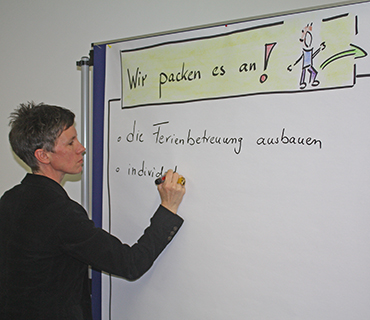 Wir packen es an!
• die Ferienbetreuung ausbauen